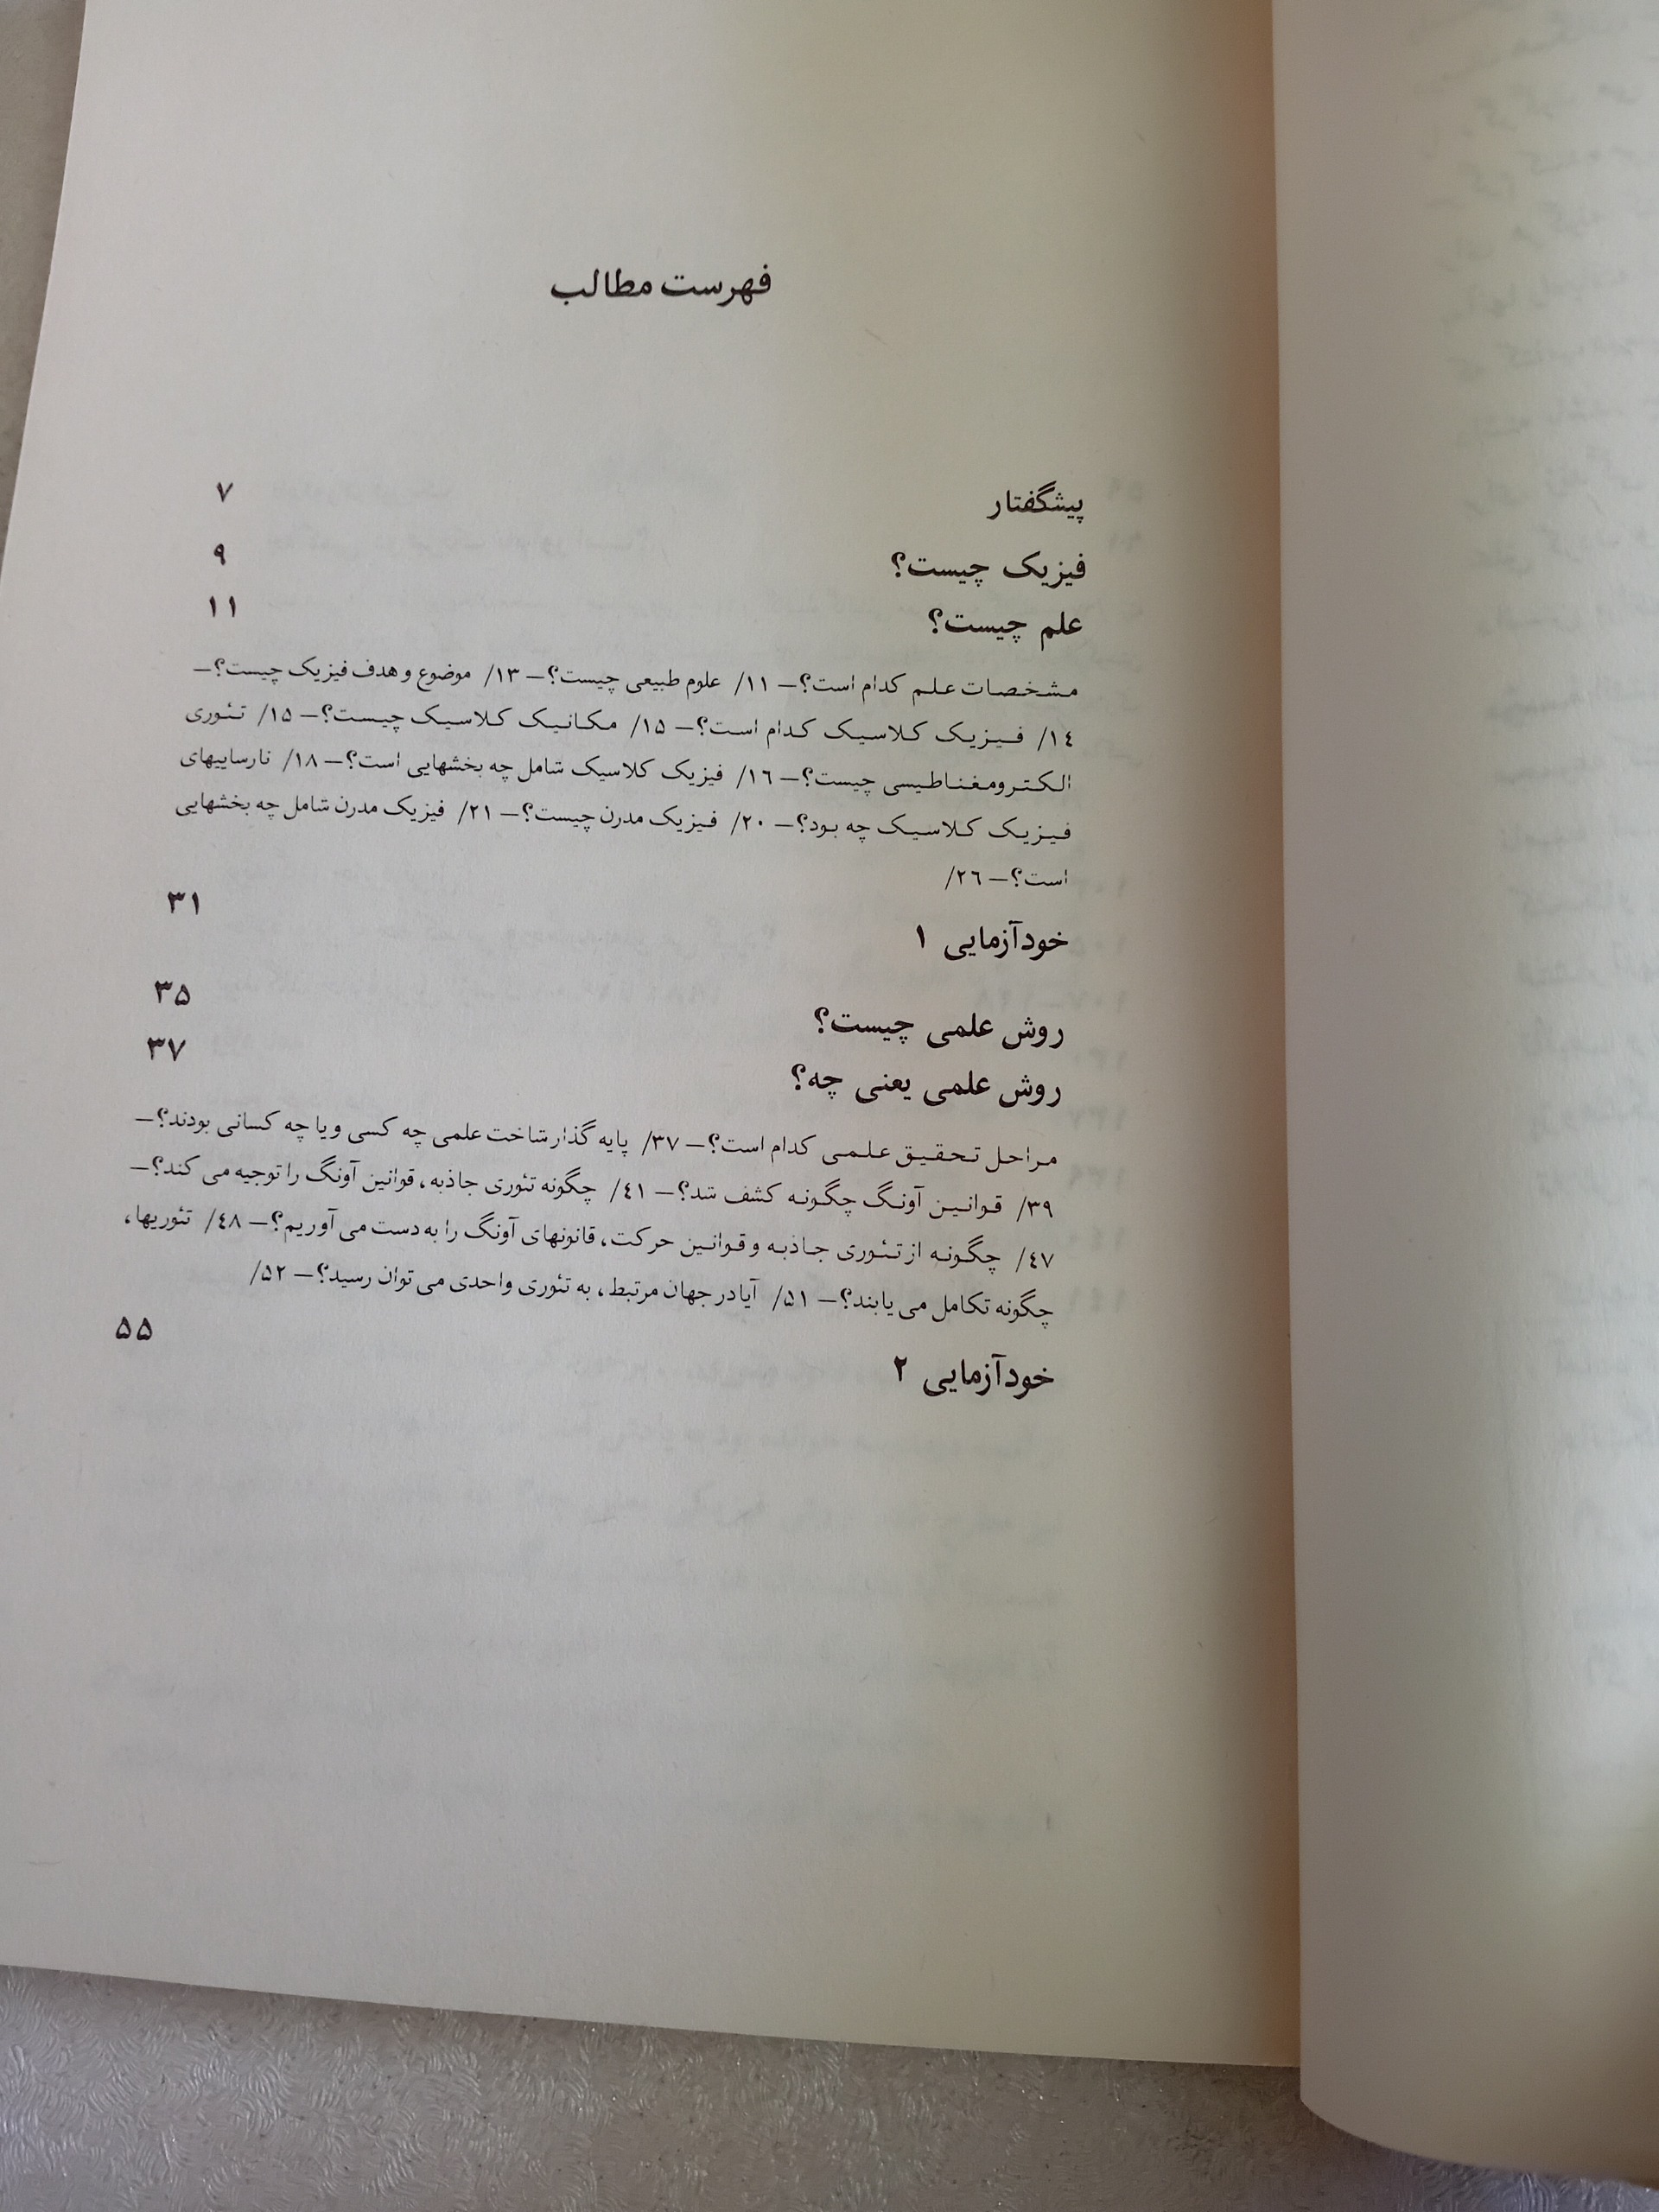 فهرست مطالب
پیشگفتار ۷
فیزیک چیست؟ ۹
علم چیست؟ ۱۱
مشخصات علم کدام است؟— ۱۱/ علوم طبیعی چیست؟— ۱۳/ موضوع و هدف فیزیک چیست؟—
۱٤/ فیزیک کلاسیک کدام است؟— ۱۵/ مکانیک کلاسیک چیست؟— ۱۵/ تئوری
الکترومغناطیسی چیست؟— ۱٦/ فیزیک کلاسیک شامل چه بخشهایی است؟— ۱۸/ نارساییهای
فیزیک کلاسیک چه بود؟— ۲۰/ فیزیک مدرن چیست؟— ۲۱/ فیزیک مدرن شامل چه بخشهایی
است؟— ۲٦/
خودآزمایی ۱ ۳۱
روش علمی چیست؟ ۳۵
روش علمی یعنی چه؟ ۳۷
مراحل تحقیق علمی کدام است؟— ۳۷/ پایه گذار شاخت علمی چه کسی و یا چه کسانی بودند؟—
۳۹/ قوانین آونگ چگونه کشف شد؟— ٤۱/ چگونه تئوری جاذبه، قوانین آونگ را توجیه می کند؟—
٤۷/ چگونه از تئوری جاذبه و قوانین حرکت، قانونهای آونگ را به دست می آوریم؟— ٤۸/ تئوریها،
چگونه تکامل می یابند؟— ۵۱/ آیا در جهان مرتبط، به تئوری واحدی می توان رسید؟— ۵۲/
خودآزمایی ۲ ۵۵